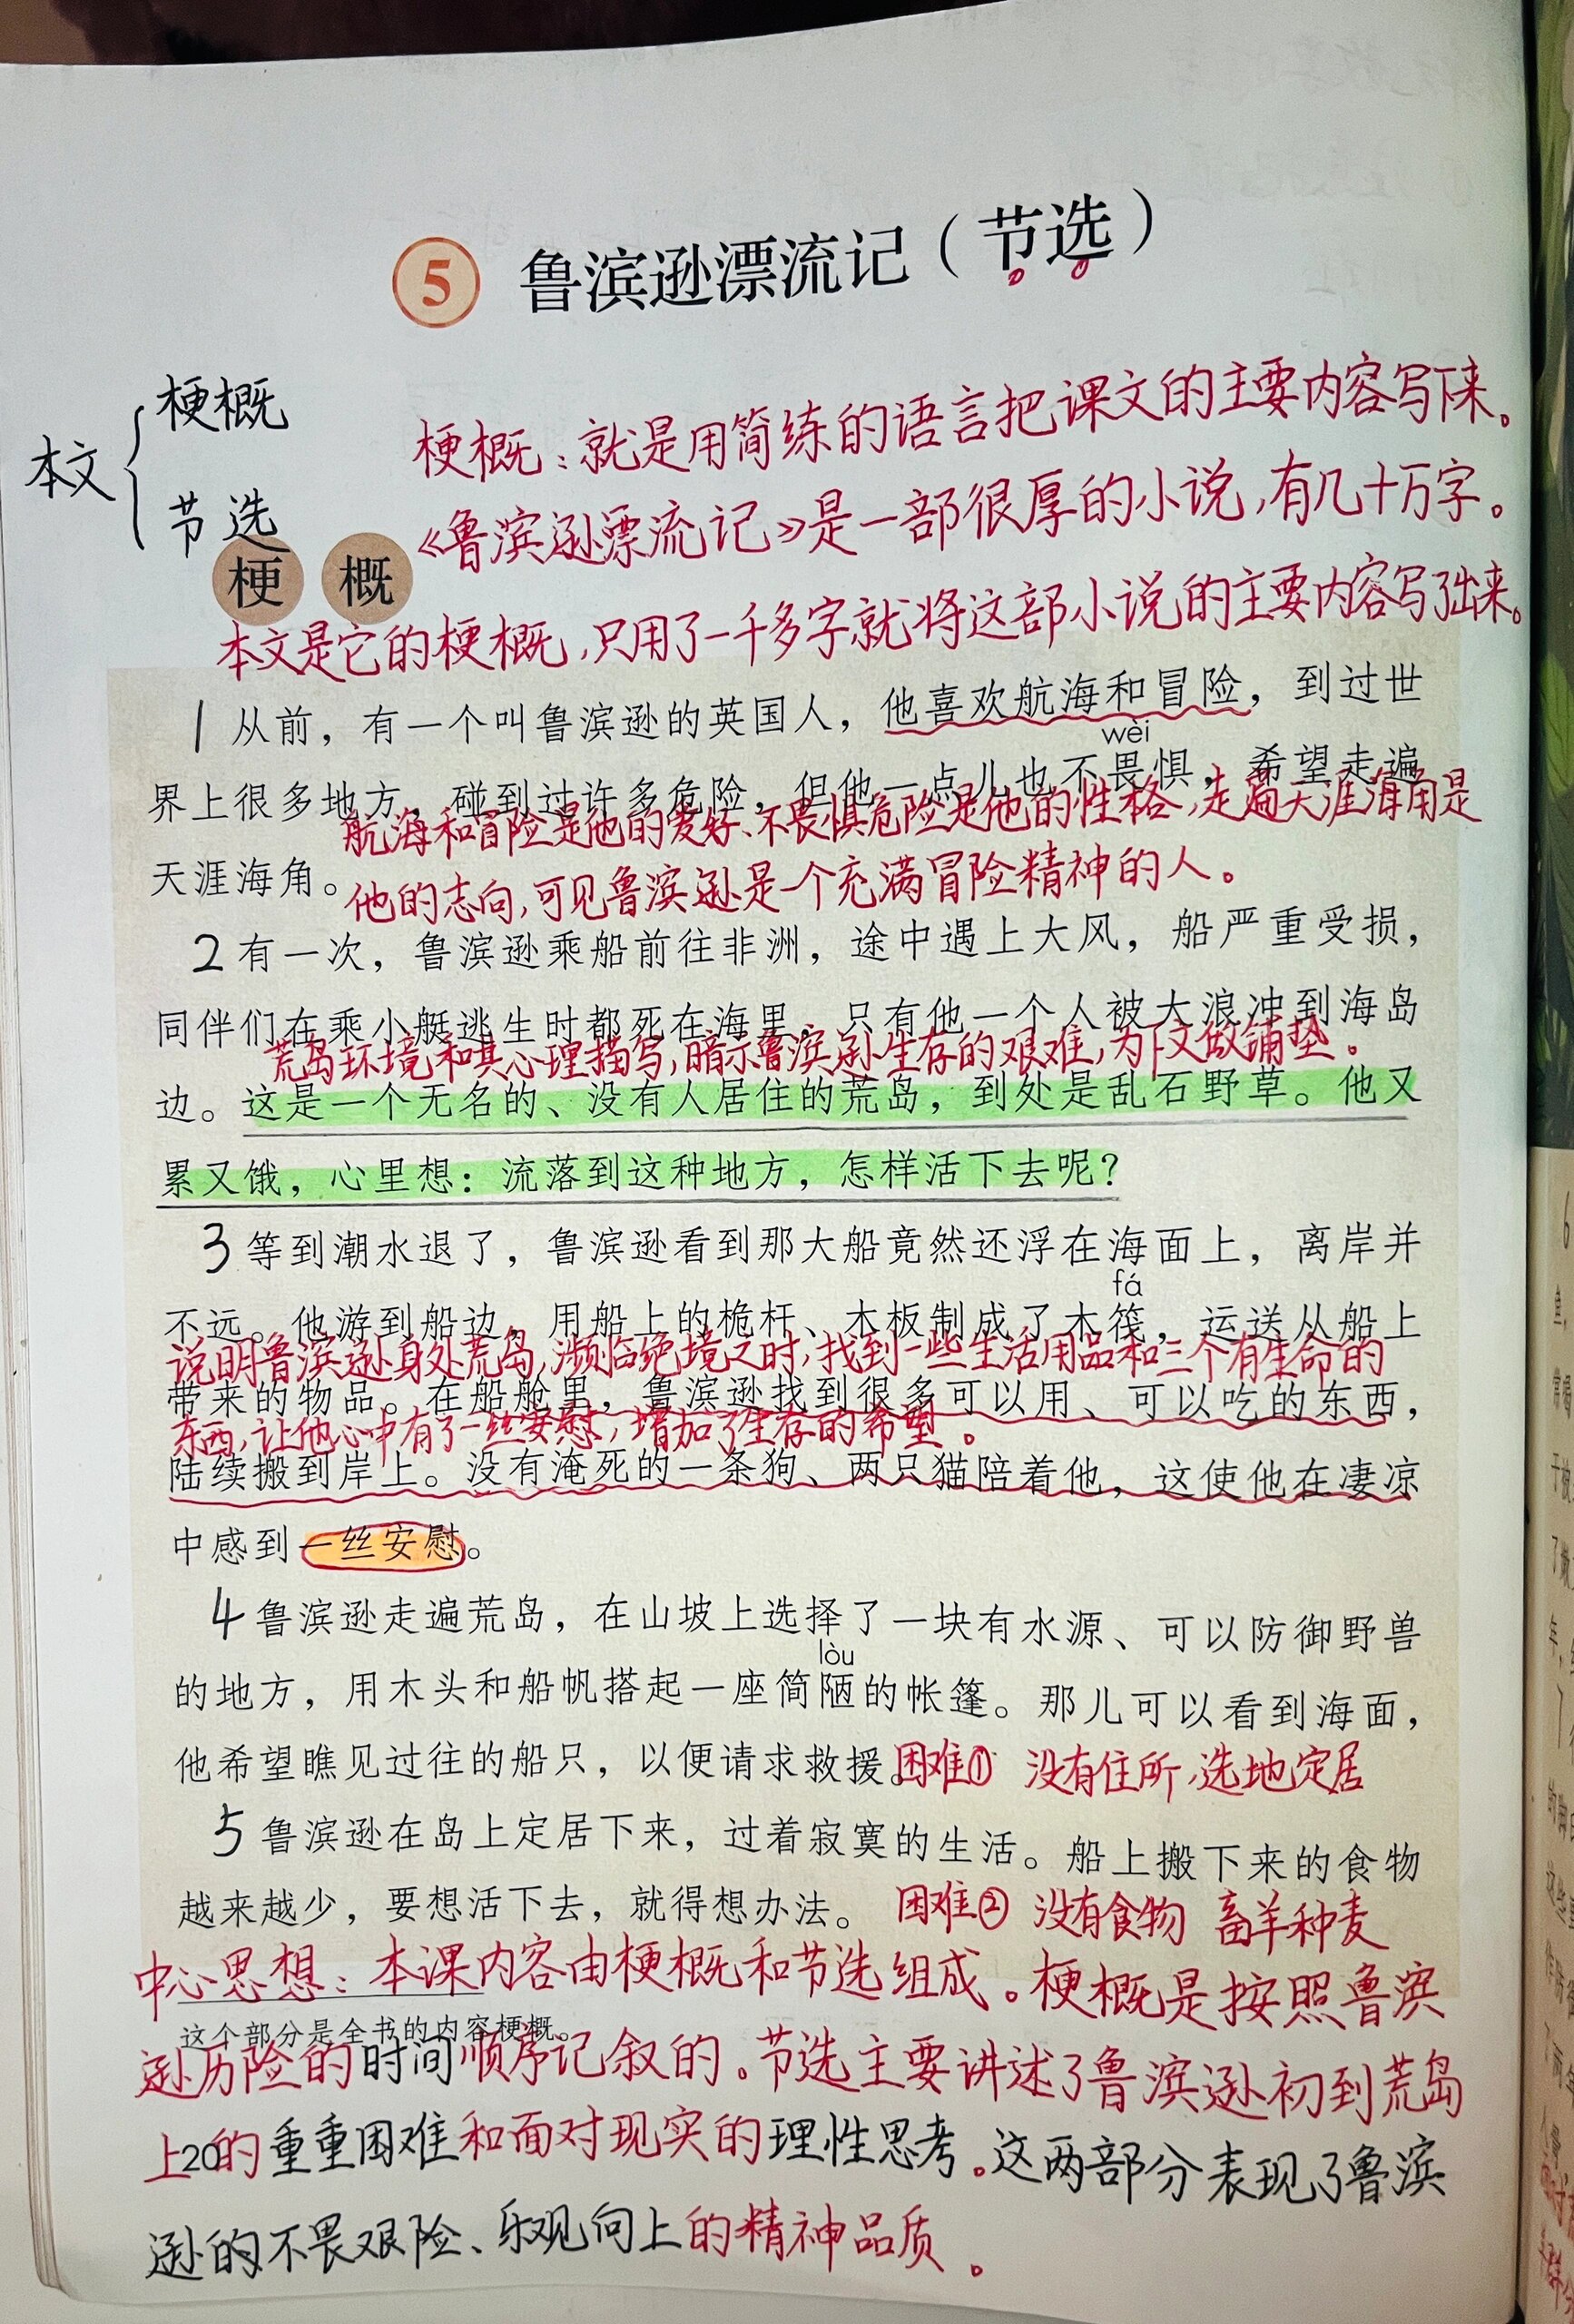 5 鲁滨逊漂流记（节选）
本文
梗概
节选
梗概：就是用简练的语言把课文的主要内容写下来。
《鲁滨逊漂流记》是一部很厚的小说，有几十万字。
梗 概
本文是它的梗概，只用了一千多字就将这部小说的主要内容写了出来。
1 从前，有一个叫鲁滨逊的英国人，他喜欢航海和冒险，到过世
wèi
界上很多地方，碰到过许多危险，但他一点儿也不畏惧，希望走遍
航海和冒险是他的爱好、不畏惧危险是他的性格，走遍天涯海角是
天涯海角。
他的志向，可见鲁滨逊是一个充满冒险精神的人。
2 有一次，鲁滨逊乘船前往非洲，途中遇上大风，船严重受损，
同伴们在乘小艇逃生时都死在海里，只有他一个人被大浪冲到海岛
荒岛环境和其心理描写，暗示鲁滨逊生存的艰难，为下文做铺垫。
边。这是一个无名的、没有人居住的荒岛，到处是乱石野草。他又
累又饿，心里想：流落到这种地方，怎样活下去呢？
3 等到潮水退了，鲁滨逊看到那大船竟然还浮在海面上，离岸并
fá
不远。他游到船边，用船上的桅杆、木板制成了木筏，运送从船上
说明鲁滨逊身处荒岛，濒临绝境之时，找到一些生活用品和三个有生命的
带来的物品。在船舱里，鲁滨逊找到很多可以用、可以吃的东西，
东西，让他心中有了一丝安慰，增加了生存的希望。
陆续搬到岸上。没有淹死的一条狗、两只猫陪着他，这使他在凄凉
中感到一丝安慰。
4 鲁滨逊走遍荒岛，在山坡上选择了一块有水源、可以防御野兽
lòu
的地方，用木头和船帆搭起一座简陋的帐篷。那儿可以看到海面，
他希望瞧见过往的船只，以便请求救援。困难① 没有住所，选地定居
5 鲁滨逊在岛上定居下来，过着寂寞的生活。船上搬下来的食物
越来越少，要想活下去，就得想办法。 困难② 没有食物 畜羊种麦
中心思想：本课内容由梗概和节选组成。梗概是按照鲁滨
这个部分是全书的内容梗概。
逊历险的时间顺序记叙的。节选主要讲述了鲁滨逊初到荒岛
上的重重困难和面对现实的理性思考。这两部分表现了鲁滨
20
逊的不畏艰险、乐观向上的精神品质。